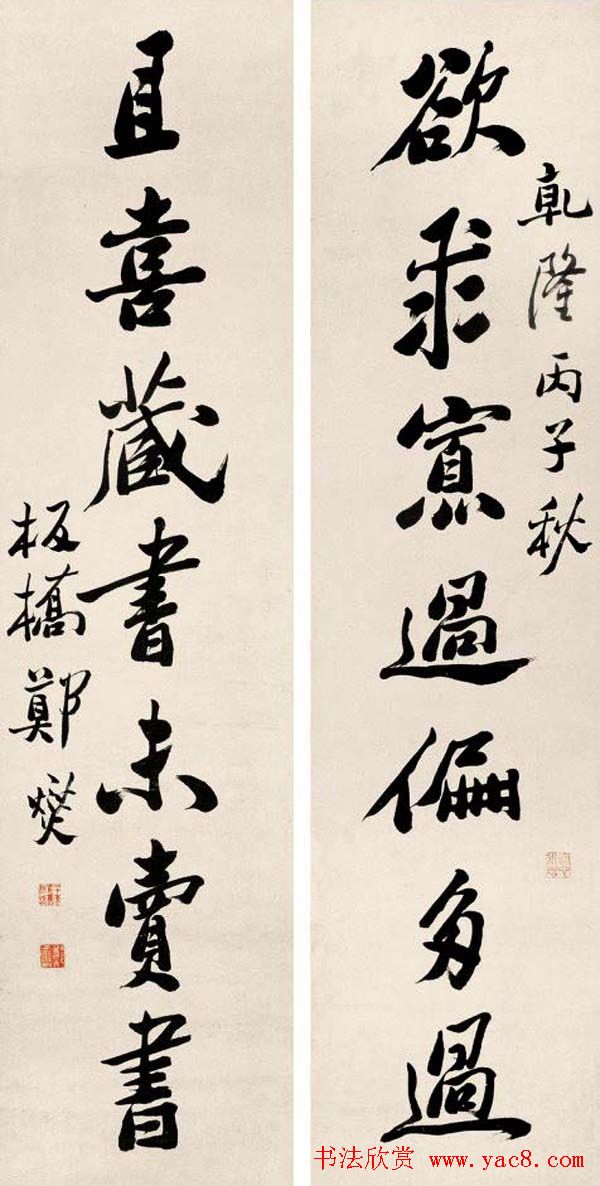 乾隆丙子秋
欲求寡過偏多過
且喜藏書未賣書
板橋鄭燮
书法欣赏 www.yac8.com